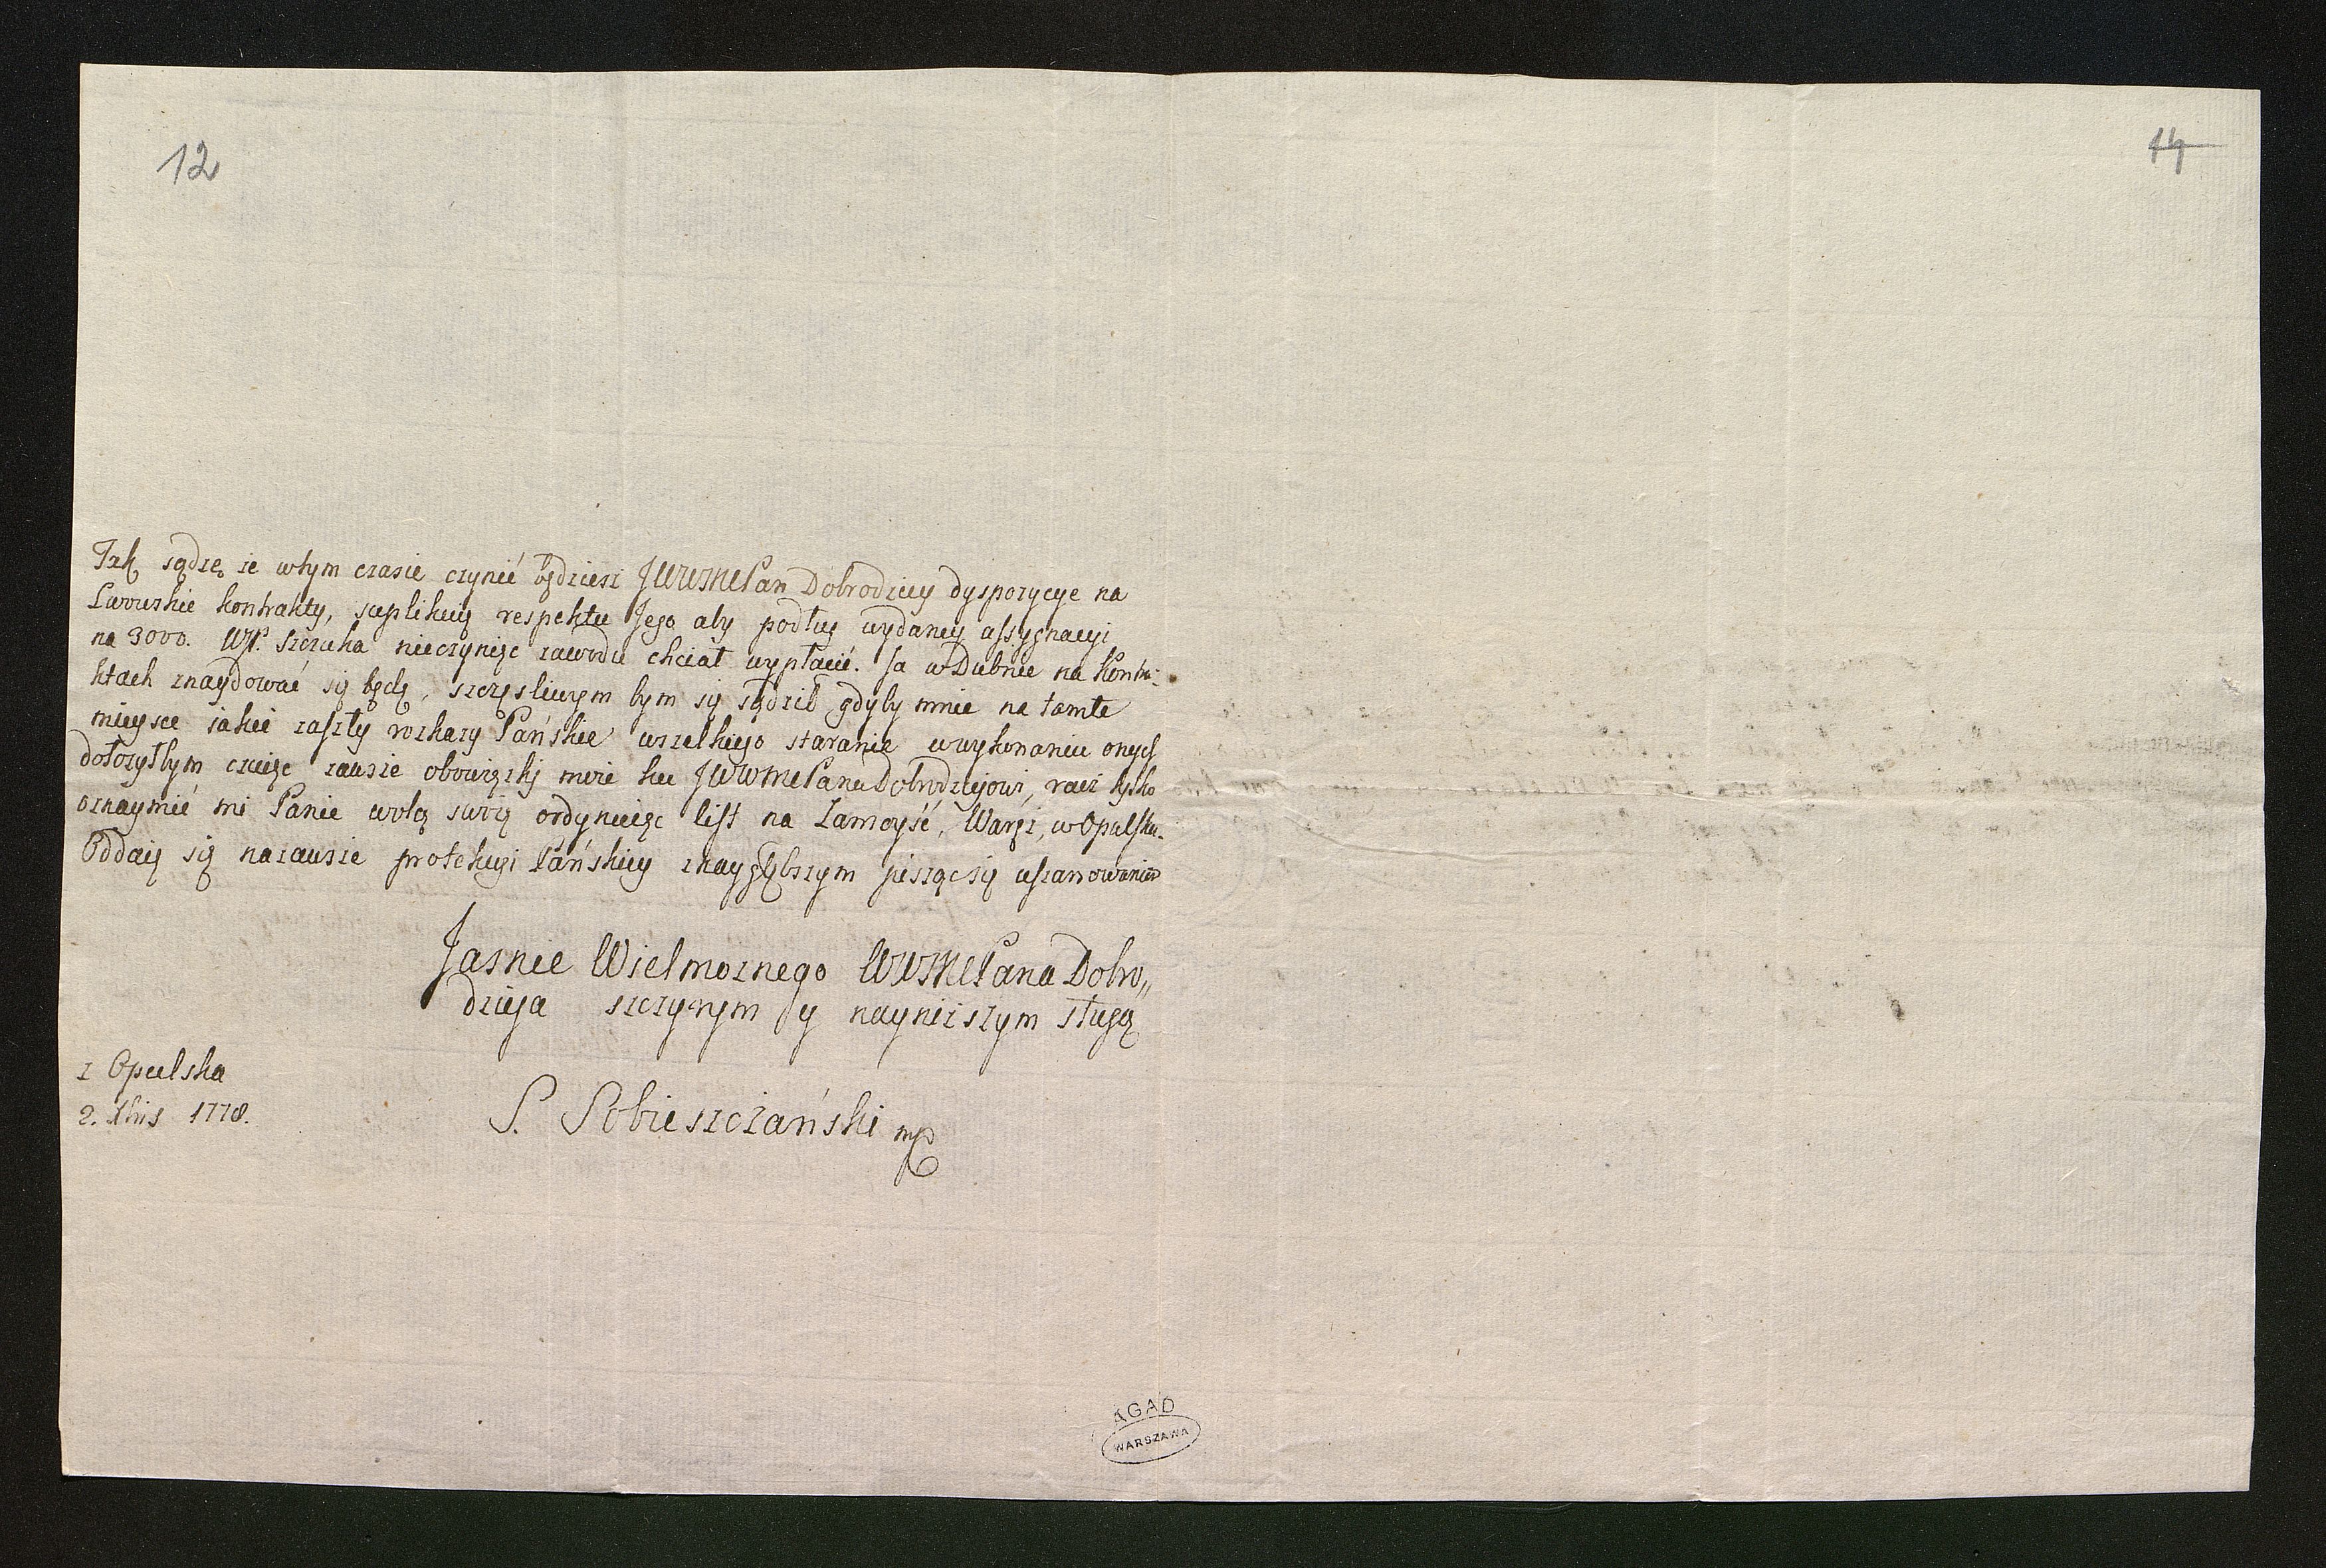 12
14
Tak sądzę ze wtym czasie czynić będziesz JWWMPan Dobrodziey dyspozycye na
Lwowskie kontrakty, suplikuię respektu Jego aby podług wydaney assygnacyi
na 3000. WP. Szczuka nieczyniąc zawodu chciał wypłacić. Ja w Dubnie na Kontra-
ktach znaydować się będę, szczęsliwym bym się sądził gdyby mnie na tamte
mieysce iakie zaszły rozkazy Pańskie wszelkiego staranie wwykonaniu onych
dołozyłbym czuiąc zawsze obowiązki moie ku JWWMPanu Dobrodziejowi, racz tylko
oznaymić mi Panie wolą swoię ordynuiąc list na Zamoyść, Waręz, w Opulsku.
Oddaię się nazawsze protekcyi Pańskiey znaygłębszym piszącsię uszanowaniem
Jasnie Wielmoznego WWMPana Dobro„
dzieja szczyrym y nayniższym sługą
z Opulska
2. Xbris 1778.
S. Sobieszczański mp
AGAD
WARSZAWA